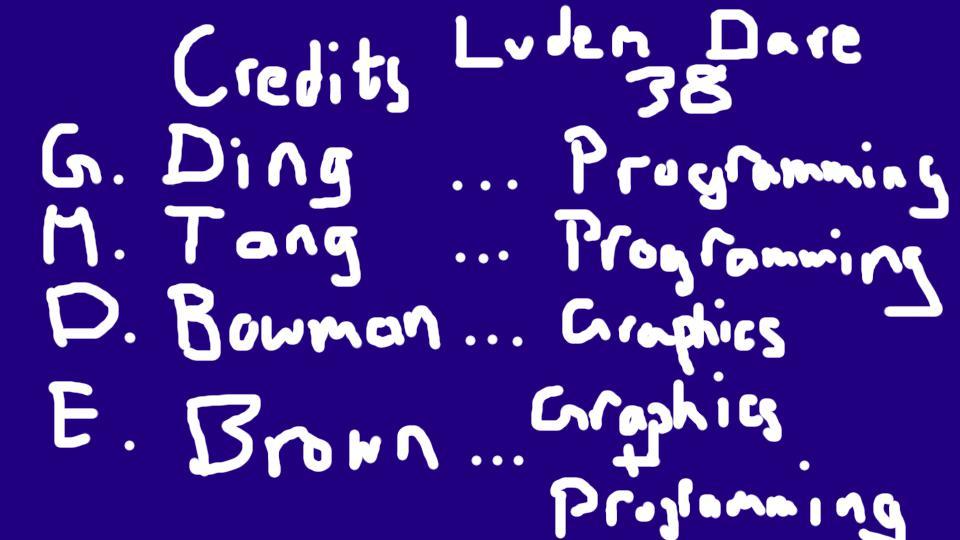 Credits Ludem Dare
38
G. Ding ... Programming
M. Tang ... Programming
D. Bowman ... Graphics
E. Brown ... Graphics
+
Programming